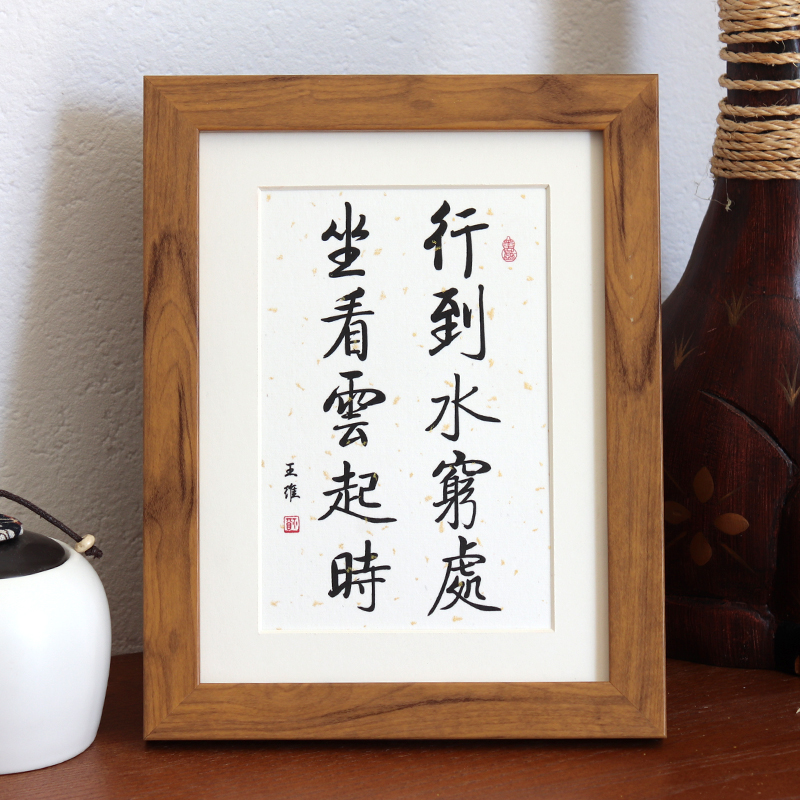 行到水窮處
坐看雲起時
王維